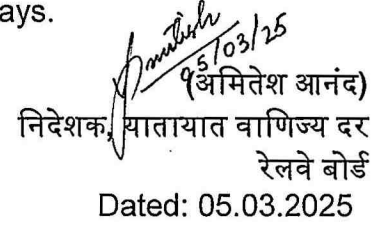 ays.
05/03/25
(अमितेश आनंद)
निदेशक, यातायात वाणिज्य दर
रेलवे बोर्ड
Dated: 05.03.2025